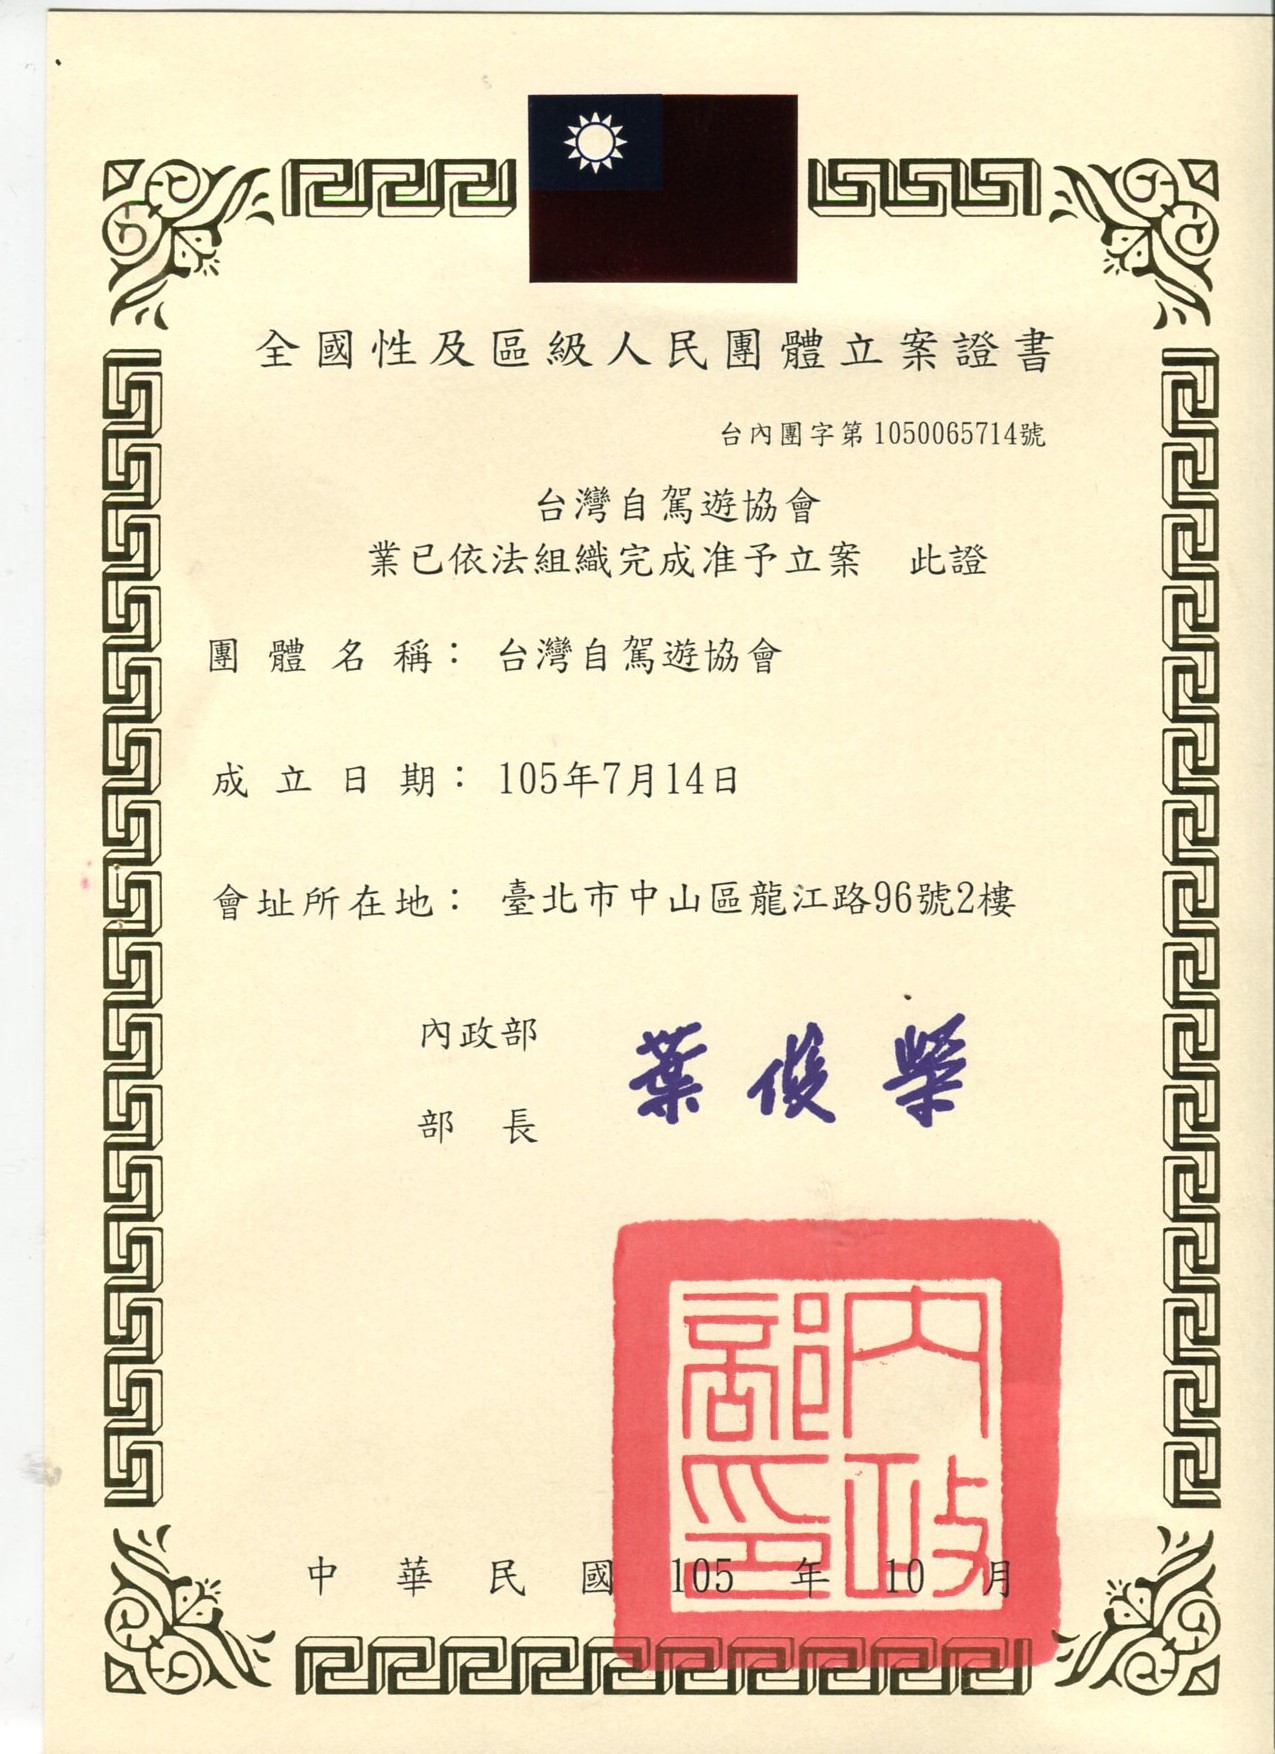 全國性及區級人民團體立案證書
台內團字第1050065714號
台灣自駕遊協會
業已依法組織完成准予立案　此證
團體名稱：台灣自駕遊協會
成立日期：105年7月14日
會址所在地：臺北市中山區龍江路96號2樓
內政部
部長
葉俊榮
內政部印
中華民國105年10月